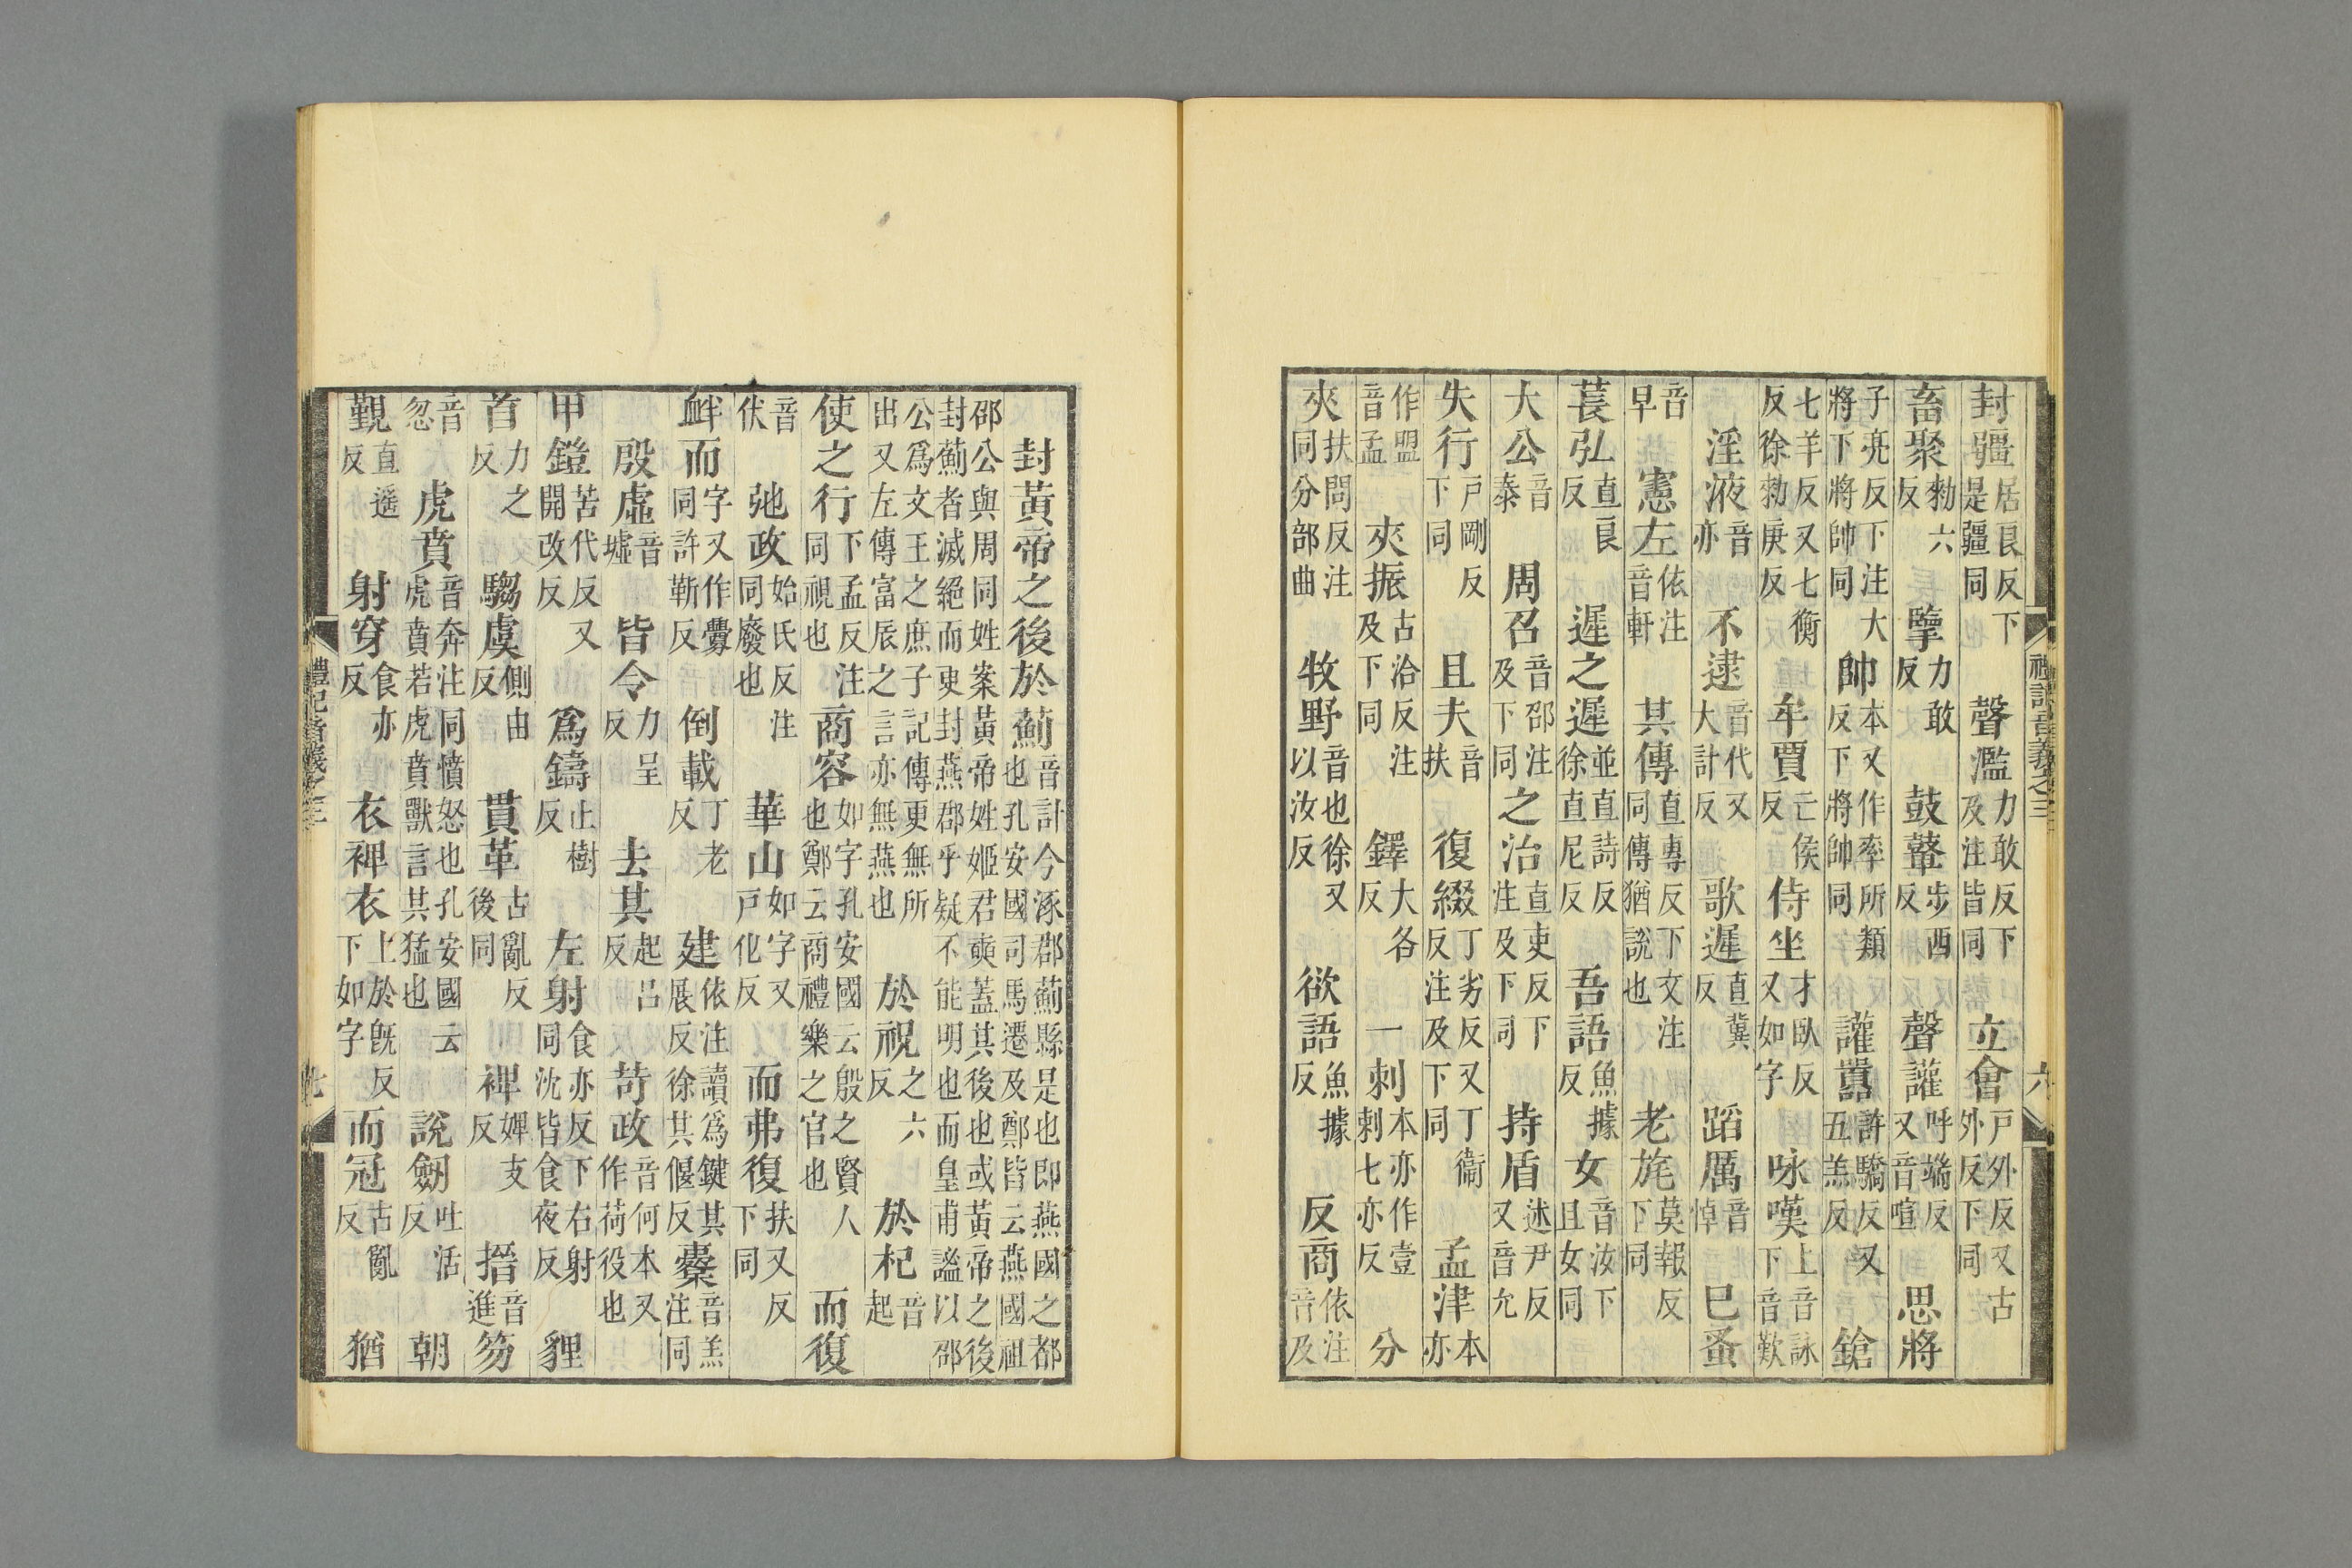 封疆居艮反下是疆同聲濫力敢反下及注皆同立會戶外反又古外反下同
畜聚勑六反擥力敢反鼓鼙步西反聲讙呼端反又音喧思將
子亮反下注大將下將帥同帥本又作率所類反下將帥同讙嚻許驕反又五羔反鎗
七羊反又七衡反徐勑庚反牟賈亡侯反侍坐才臥反又如字咏嘆上音詠下音歎
淫液音亦不逮音代又大計反歌遲直冀反蹈厲音悼已蚤
音早憲左依注音軒其傳直專反下文注同傳猶說也老旄莫報反下同
萇弘直良反遲之遲並直詩反徐直尼反吾語魚據反女音汝下且女同
大公音泰周召音邵注及下同之治直吏反下注及下同持盾述尹反又音允
失行戶剛反下同且夫音扶復綴丁劣反又丁衞反注及下同孟津本亦
作盟音孟夾振古洽反注及下同鐸大各反一刺本亦作壹刺七亦反分
夾扶問反注同分部曲牧野音也徐又以汝反欲語魚據反反商依注音及
禮記音義之三
六
封黃帝之後於薊音計今涿郡薊縣是也即燕國之都也孔安國司馬遷及鄭皆云燕國祖
邵公與周同姓案黃帝姓姬君奭蓋其後也或黃帝之後封薊者滅絕而更封燕郡乎疑不能明也而皇甫謐以邵
公爲文王之庶子記傳更無所出又左傳富辰之言亦無燕也於祝之六反於杞音起
使之行下孟反注同視也商容如字孔安國云殷之賢人也鄭云商禮樂之官也而復
音伏弛政始氏反注同廢也華山如字又戶化反而弗復扶又反下同
衅而字又作釁同許靳反倒載丁老反建依注讀爲鍵其展反徐其偃反櫜音羔注同
殷虛音墟皆令力呈反去其起呂反苛政音何本又作荷役也
甲鎧苦代反又開改反爲鑄止樹反左射食亦反下右射同沈皆食夜反貍
首力之反騶虞側由反貫革古亂反後同裨婢支反搢音進笏
音忽虎賁音奔注同憤怒也孔安國云虎賁若虎賁獸言其猛也說劒吐活反朝
覲直遥反射穿食亦反衣裨衣上於旣反下如字而冠古亂反猶
禮記音義之三
七